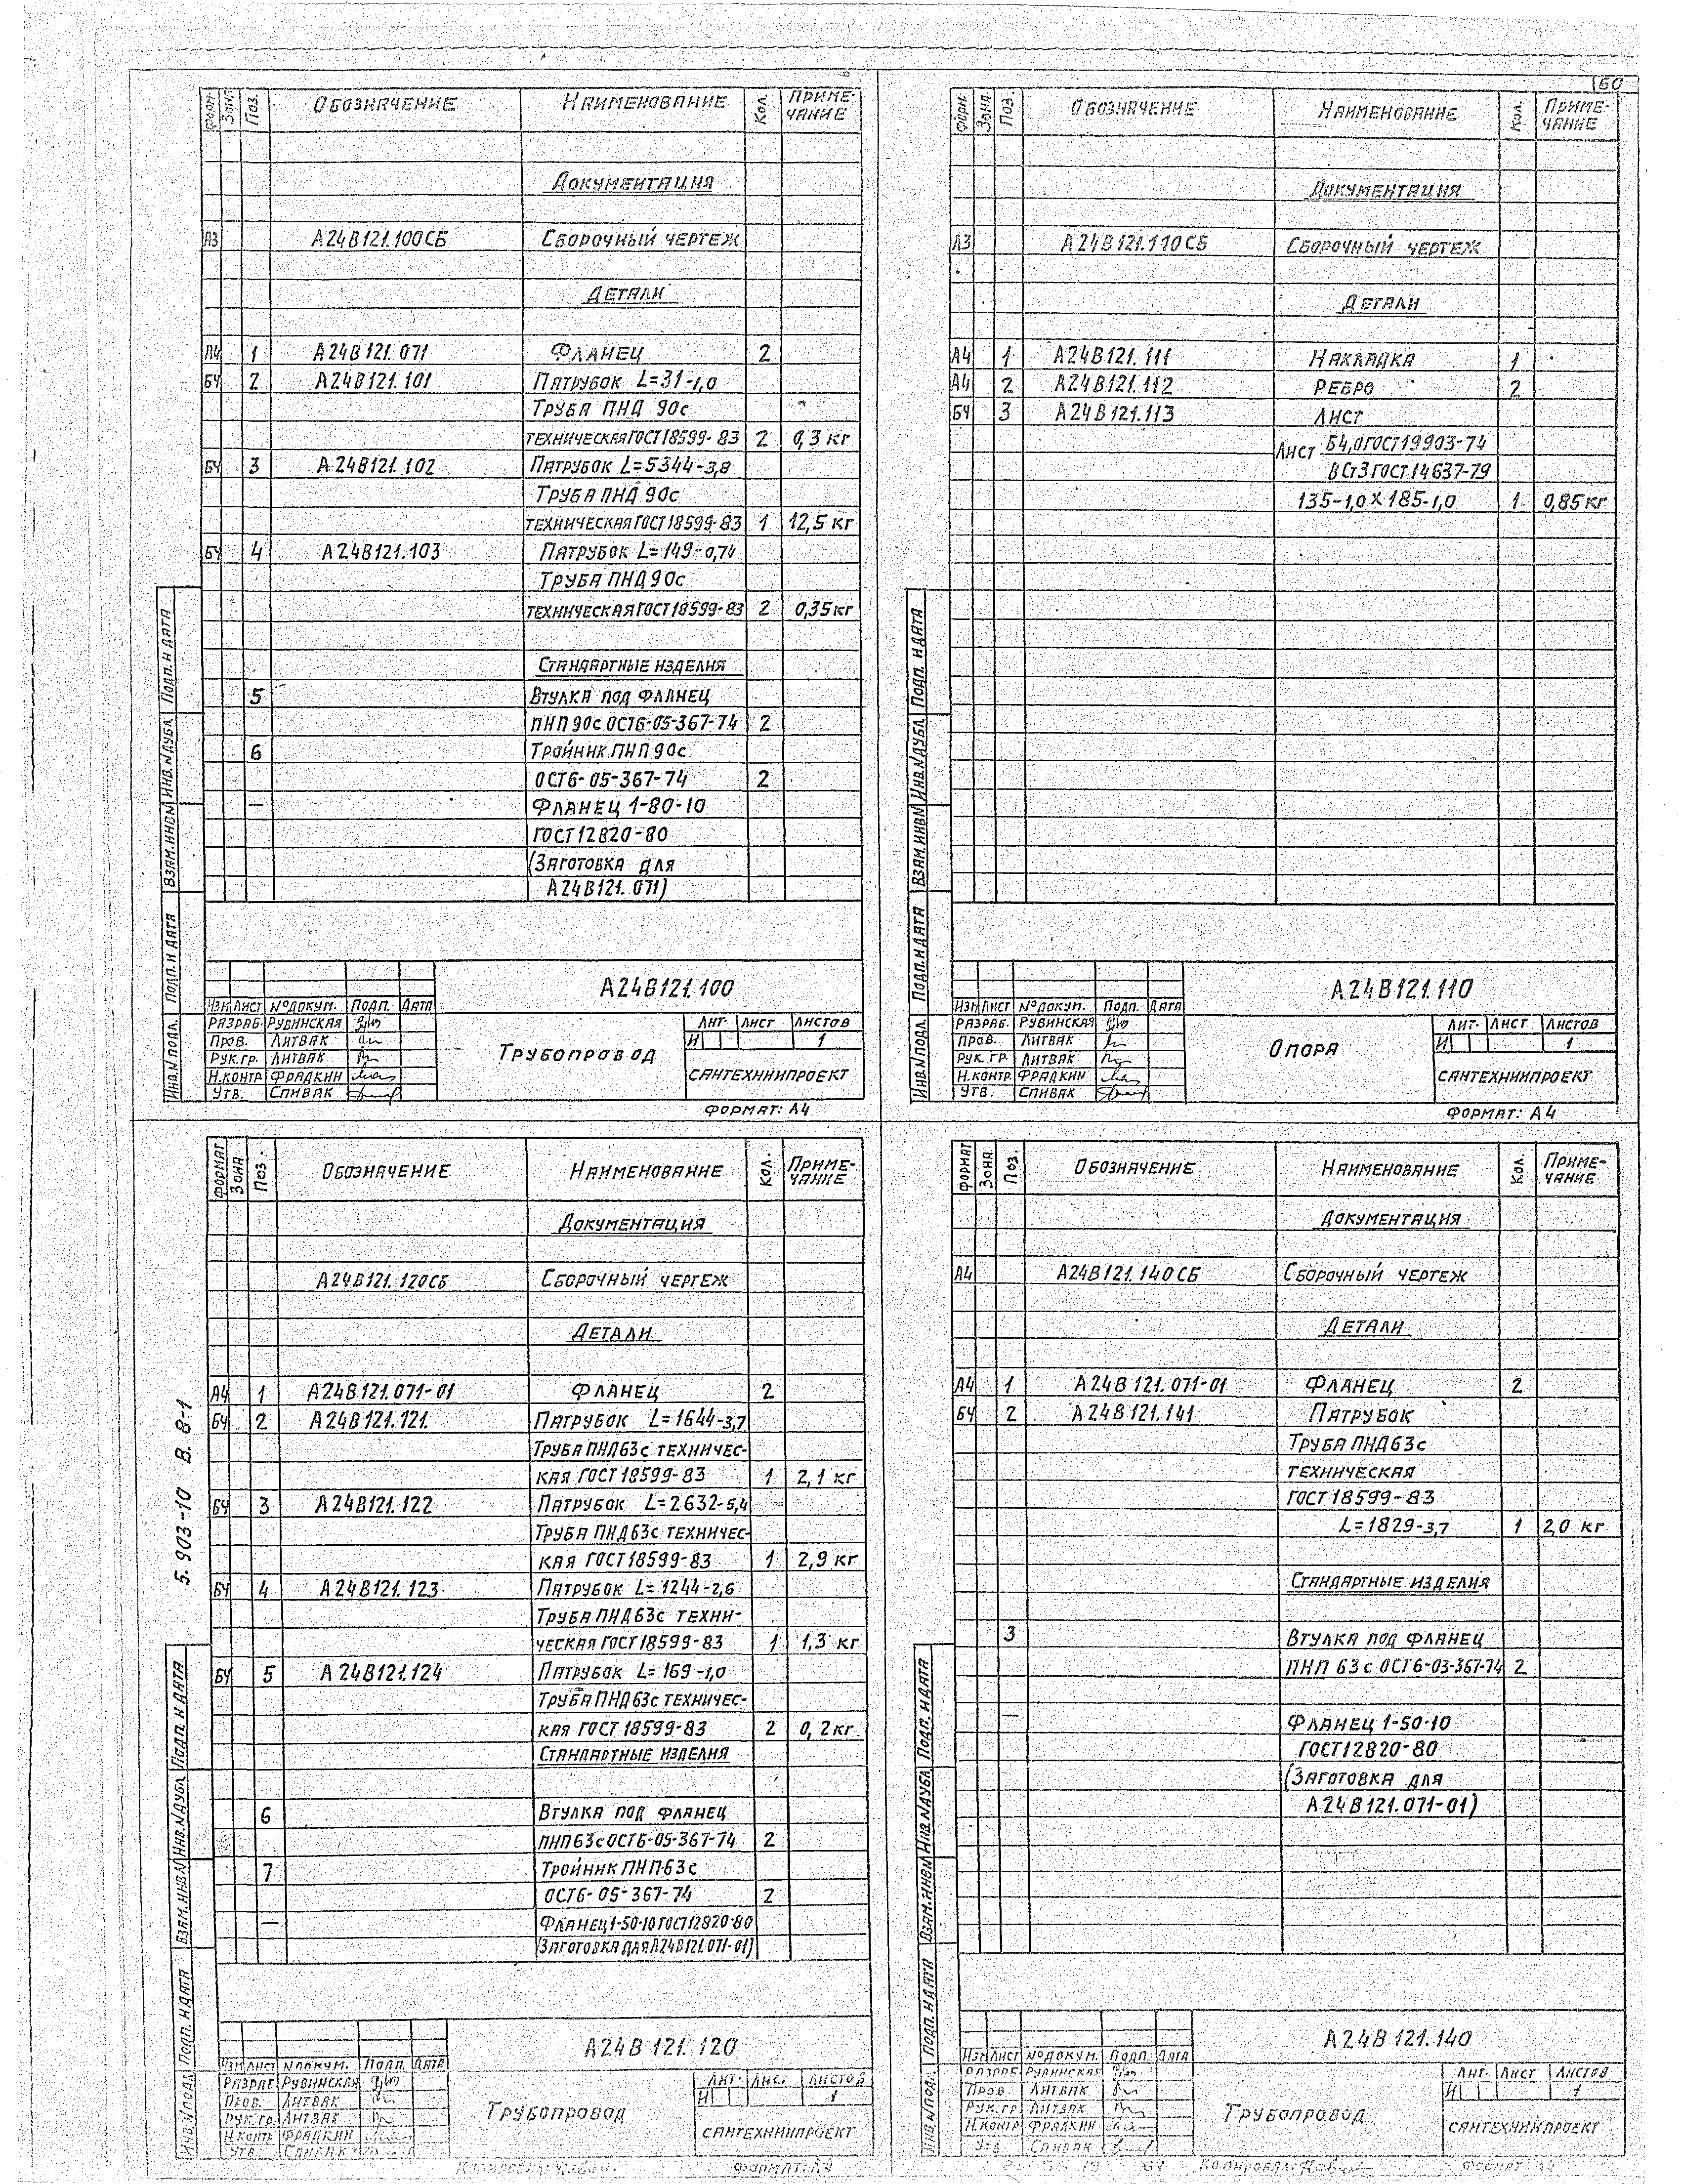 60
Форм. Зона Поз. Обозначение Наименование Кол. Примечание
Документация
А3 А24В121.100СБ Сборочный чертеж
Детали
А4 1 А24В121.071 Фланец 2
БЧ 2 А24В121.101 Патрубок L=31-1,0
Труба ПНД 90с
техническая ГОСТ 18599-83 2 0,3 кг
БЧ 3 А24В121.102 Патрубок L=5344-3,8
Труба ПНД 90с
техническая ГОСТ 18599-83 1 12,5 кг
БЧ 4 А24В121.103 Патрубок L=149-0,74
Труба ПНД 90с
техническая ГОСТ 18599-83 2 0,35 кг
Стандартные изделия
5 Втулка под фланец
ПНП 90с ОСТ6-05-367-74 2
6 Тройник ПНП 90с
ОСТ6-05-367-74 2
— Фланец 1-80-10
ГОСТ 12820-80
(Заготовка для
А24В121.071)
А24В121.100
Изм Лист № докум. Подп. Дата
Разраб. Рубинская
Пров. Литвак
Рук.гр. Литвак
Н.контр Фрадкин
Утв. Спивак
Трубопровод
Лит. Лист Листов
И 1
Сантехниипроект
Формат: А4
Инв.№ подл. Подп. и дата Взам.инв№ Инв.№ дубл. Подп. и дата
Форм. Зона Поз. Обозначение Наименование Кол. Примечание
Документация
А3 А24В121.110СБ Сборочный чертеж
Детали
А4 1 А24В121.111 Накладка 1
А4 2 А24В121.112 Ребро 2
БЧ 3 А24В121.113 Лист
Лист Б4,0 ГОСТ 19903-74
ВСт3 ГОСТ 14637-79
135-1,0 х 185-1,0 1 0,85 кг
А24В121.110
Изм Лист № докум. Подп. Дата
Разраб. Рубинская
Пров. Литвак
Рук. гр. Литвак
Н.контр. Фрадкин
Утв. Спивак
Опора
Лит. Лист Листов
И 1
Сантехниипроект
Формат: А4
Инв.№ подл. Подп. и дата Взам.инв№ Инв.№ дубл. Подп. и дата
5.903-10 В. 8-1
Формат Зона Поз. Обозначение Наименование Кол. Примечание
Документация
А24В121.120СБ Сборочный чертеж
Детали
А4 1 А24В121.071-01 Фланец 2
БЧ 2 А24В121.121. Патрубок L=1644-3,7
Труба ПНД 63с техничес-
кая ГОСТ 18599-83 1 2,1 кг
БЧ 3 А24В121.122 Патрубок L=2632-5,4
Труба ПНД 63с техничес-
кая ГОСТ 18599-83 1 2,9 кг
БЧ 4 А24В121.123 Патрубок L=1244-2,6
Труба ПНД 63с техни-
ческая ГОСТ 18599-83 1 1,3 кг
БЧ 5 А24В121.124 Патрубок L=169-1,0
Труба ПНД 63с техничес-
кая ГОСТ 18599-83 2 0,2 кг
Стандартные изделия
6 Втулка под фланец
ПНП 63с ОСТ6-05-367-74 2
7 Тройник ПНП 63с
ОСТ6-05-367-74 2
— Фланец 1-50-10 ГОСТ 12820-80
(Заготовка для А24В121.071-01)
А24В 121.120
Изм Лист № докум. Подп. Дата
Разраб Рубинская
Пров. Литвак
Рук.гр. Литвак
Н.контр Фрадкин
Утв. Спивак
Трубопровод
Лит. Лист Листов
И 1
Сантехниипроект
Копировал: Формат: А4
Инв.№ подл. Подп. и дата Взам.инв№ Инв.№ дубл. Подп. и дата
Формат Зона Поз. Обозначение Наименование Кол. Примечание
Документация
А4 А24В121.140СБ Сборочный чертеж
Детали
А4 1 А24В121.071-01 Фланец 2
БЧ 2 А24В121.141 Патрубок
Труба ПНД 63с
техническая
ГОСТ 18599-83
L=1829-3,7 1 2,0 кг
Стандартные изделия
3 Втулка под фланец
ПНП 63с ОСТ6-03-367-74 2
— Фланец 1-50-10
ГОСТ 12820-80
(Заготовка для
А24В121.071-01)
А24В 121.140
Изм Лист № докум. Подп. Дата
Разраб. Рубинская
Пров. Литвак
Рук.гр. Литвак
Н.контр Фрадкин
Утв Спивак
Трубопровод
Лит. Лист Листов
И 1
Сантехниипроект
61 Копировал: Формат: А4
Инв.№ подл. Подп. и дата Взам.инв№ Инв.№ дубл. Подп. и дата